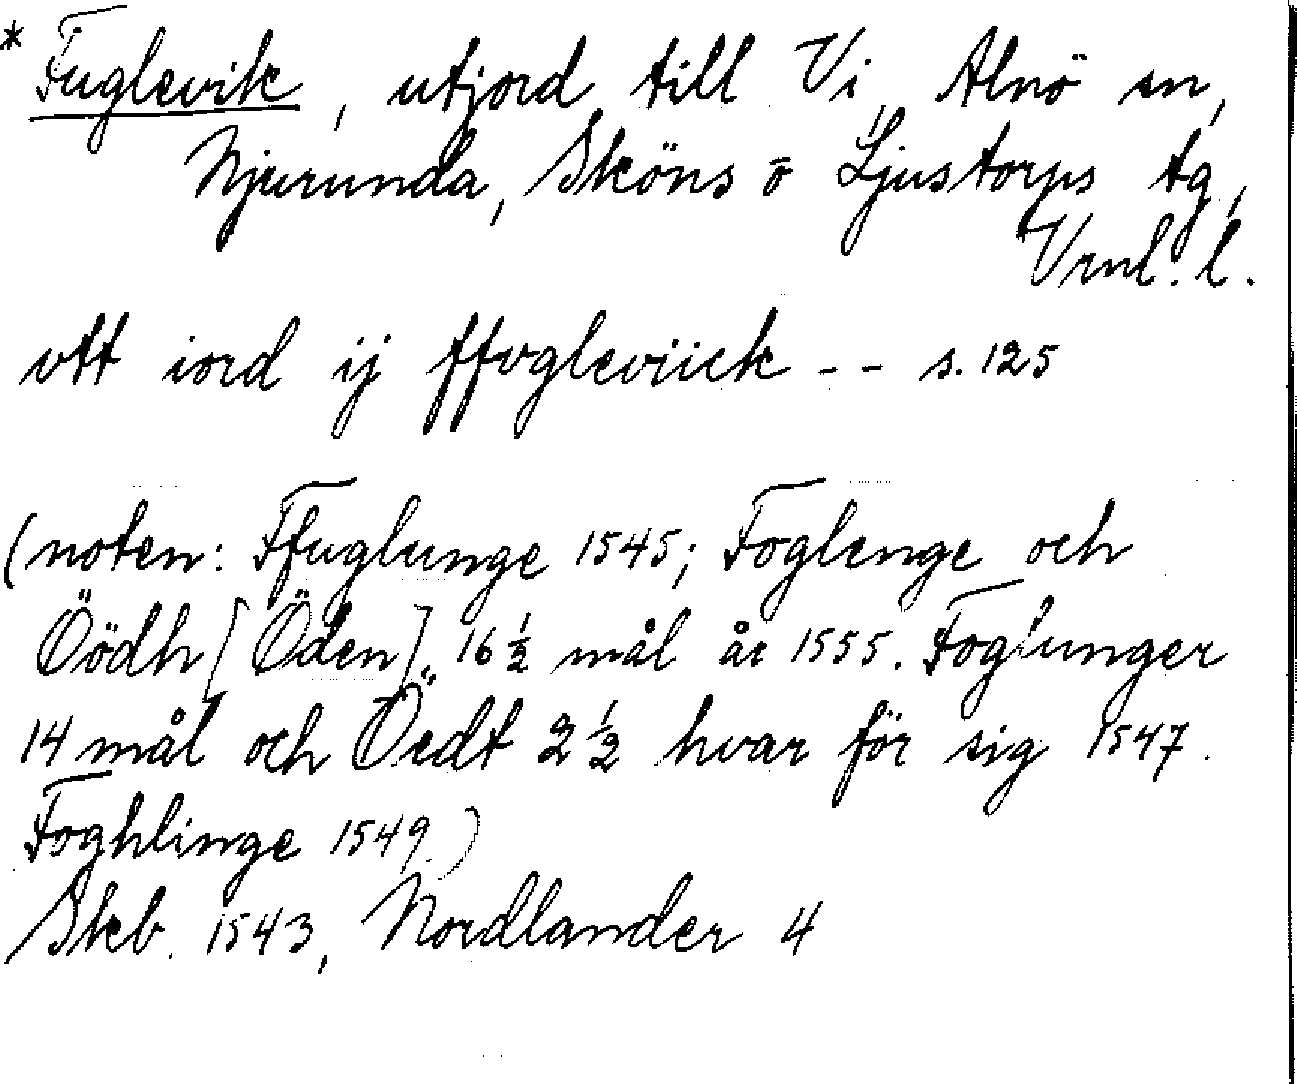 * Fuglevik, utjord till Vi, Alnö sn,
Njurunda, Sköns o Ljustorps tg,
Vrnl. l.
vtt iord ij ffvgleviick - - s. 125
(noten: Ffuglunge 1545; Foglenge och
Öödh [Öden], 16 1/2 mål år 1555. Foglunger
14 mål och Öedt 2 1/2 hvar för sig 1547.
Foghlinge 1549.)
Skb. 1543, Nordlander 4